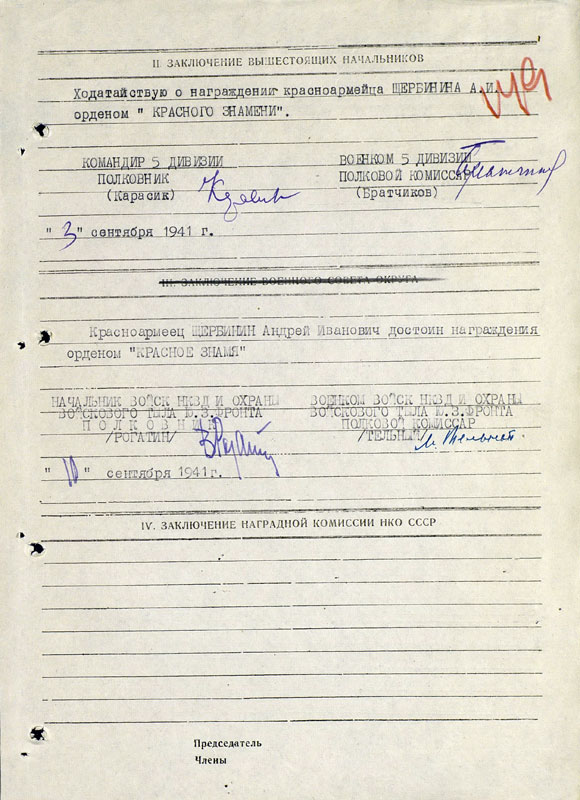 II. ЗАКЛЮЧЕНИЕ ВЫШЕСТОЯЩИХ НАЧАЛЬНИКОВ
Ходатайствую о награждении красноармейца ЩЕРБИНИНА А.И.
орденом " КРАСНОГО ЗНАМЕНИ".
КОМАНДИР 5 ДИВИЗИИ
ПОЛКОВНИК
(Карасик)
ВОЕНКОМ 5 ДИВИЗИИ
ПОЛКОВОЙ КОМИССАР
(Братчиков)
" 3 " сентября 1941 г.
III. ЗАКЛЮЧЕНИЕ ВОЕННОГО СОВЕТА ОКРУГА
Красноармеец ЩЕРБИНИН Андрей Иванович достоин награждения
орденом "КРАСНОЕ ЗНАМЯ"
НАЧАЛЬНИК ВОЙСК НКВД И ОХРАНЫ
ВОЙСКОВОГО ТЫЛА Ю.З.ФРОНТА
П О Л К О В Н И К
/РОГАТИН/
ВОЕНКОМ ВОЙСК НКВД И ОХРАНЫ
ВОЙСКОВОГО ТЫЛА Ю.З.ФРОНТА
ПОЛКОВОЙ КОМИССАР
/ТЕЛЬНЫЙ/
" 10 " сентября 1941г.
IV. ЗАКЛЮЧЕНИЕ НАГРАДНОЙ КОМИССИИ НКО СССР
Председатель
Члены